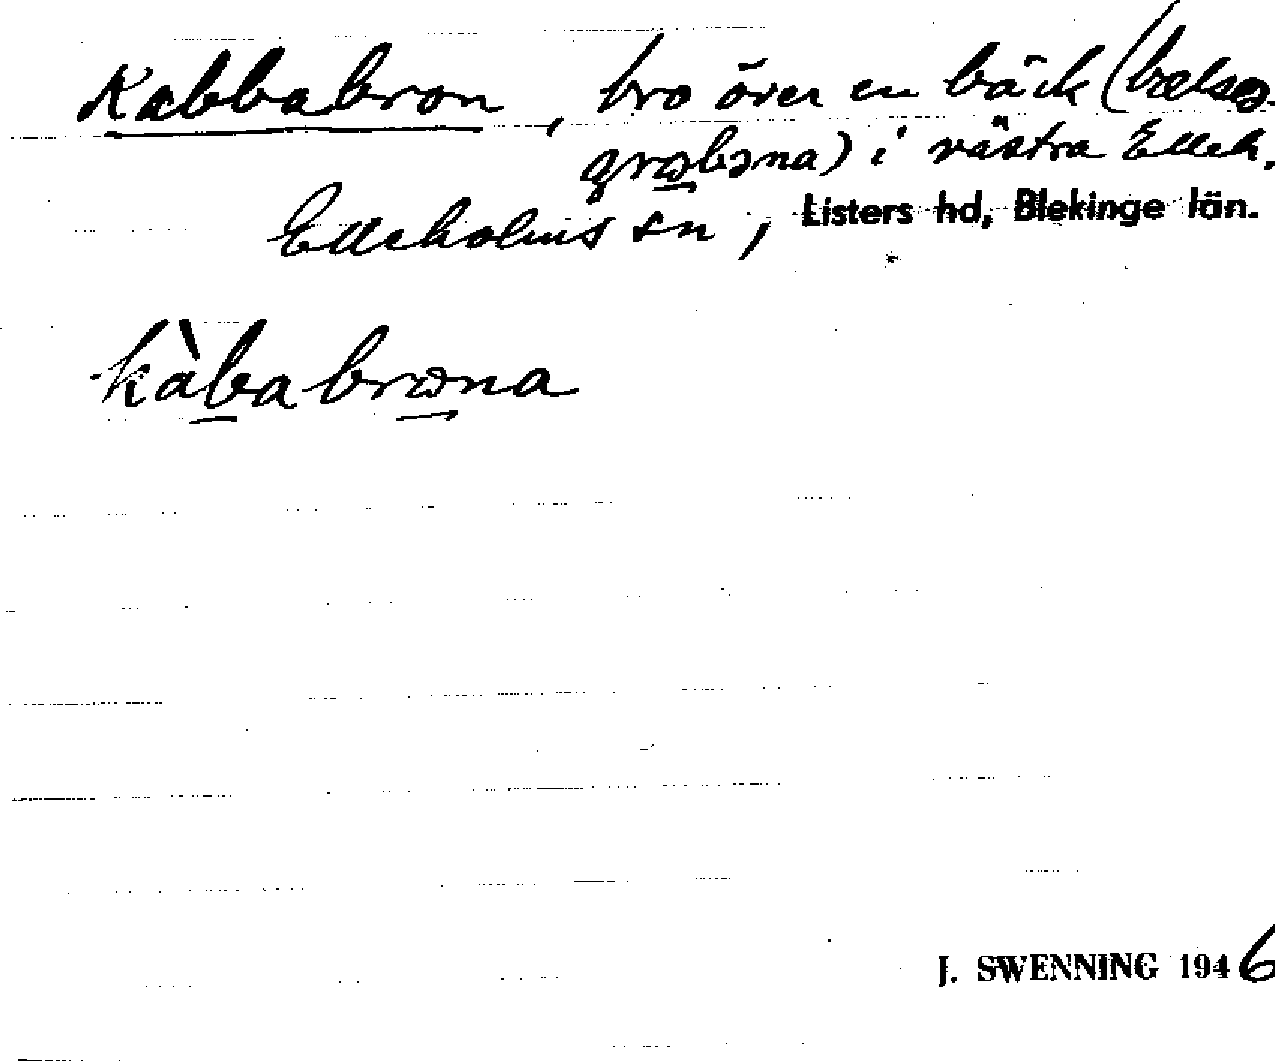 Kabbabron, bro över en bäck (bælsə-
grabəna) i västra Elleh.
Elleholms sn, Listers hd, Blekinge län.
kàbabrona
J. SWENNING 1946